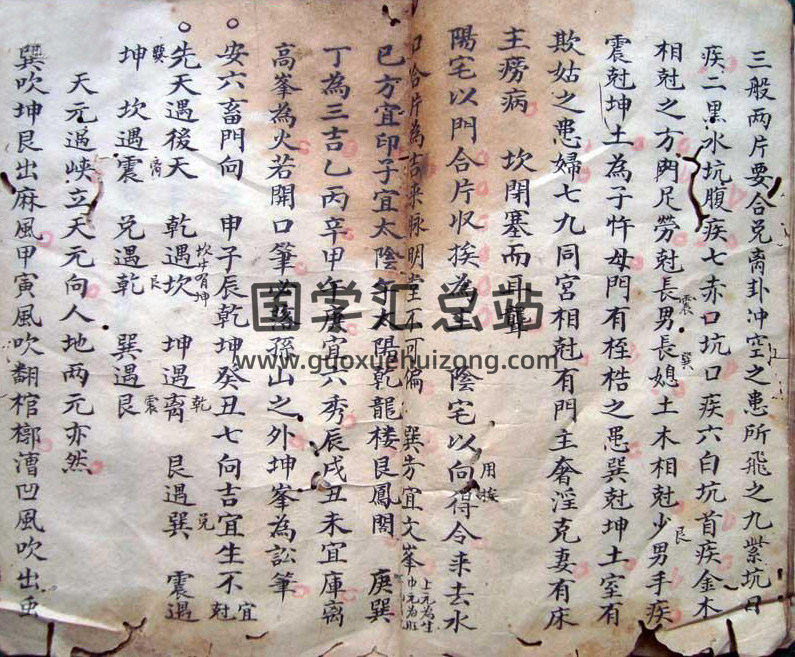 三般两片要合兑离卦冲空之患所飛之九紫坑目
疾二黑水坑腹疾七赤口坑口疾六白坑首疾金木
相尅之方門足勞尅長男長媳土木相尅少男手疾
震 巽
艮
震尅坤土為子忤母門有桎梏之患巽尅坤土室有
欺姑之患婦七九同宮相尅有門主奢淫克妻有床
主癆病 坎閉塞而耳聾
陽宅以門合片収挨為主 陰宅以向得令来去水
用挨
口合片為吉来脉明堂不可偏 巽方宜文峯
上元為生
巳方宜印子宜太陰午太陽乾龍楼艮鳳閣 庚巽
丁為三吉乙丙辛甲午庚宜六秀辰戌丑未宜庫离
高峯為火若開口筆必落孫山之外坤峯為訟筆
安六畜門向 申子辰乾坤癸丑七向吉宜生不宜尅
先天遇後天 乾遇坎 坤遇离 艮遇巽 震遇
坎中有坤
艮
乾
兑
坤 坎遇震 兑遇乾 巽遇艮
巽
震
天元過峡立天元向人地两元亦然
巽吹坤艮出麻風甲寅風吹翻棺槨漕凹風吹出虫
国学汇总站
www.guoxuehuizong.com